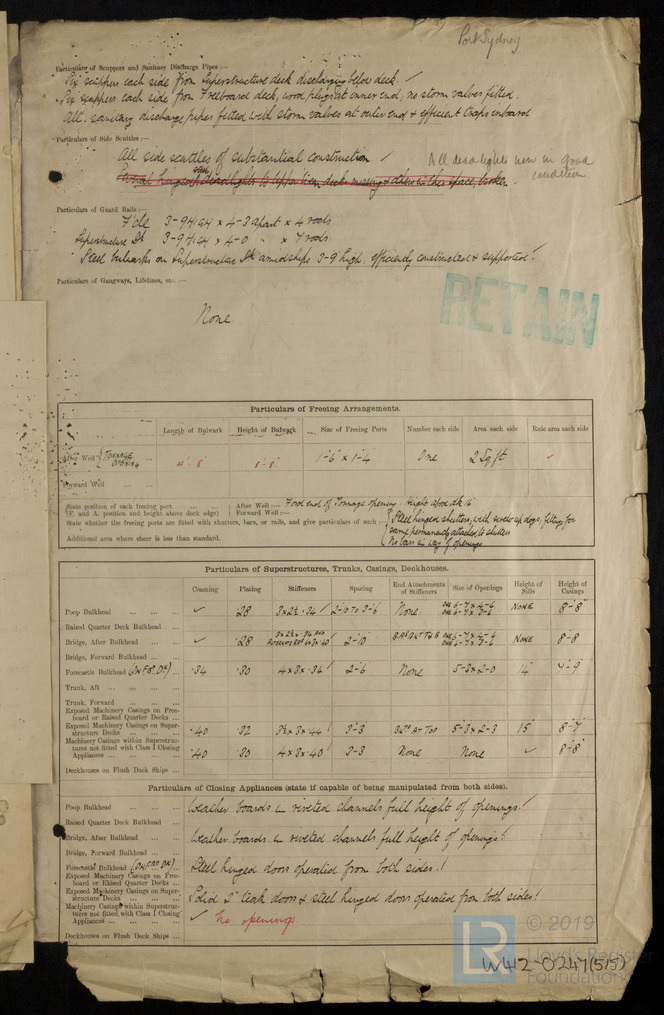 Port Sydney
Particulars of Scuppers and Sanitary Discharge Pipes :—
Six scuppers each side from Superstructure deck discharging below deck. ✓
Six scuppers each side from Freeboard deck, wood plugs at inner end, no storm valves fitted.
All sanitary discharge pipes fitted with storm valves at outer end & efficient traps inboard
Particulars of Side Scuttles :—
All side scuttles of substantial construction ✓
All deadlights now in good
condition
Several hinged deadlights to upper tween decks missing & others in this space, broken.
Particulars of Guard Rails :—
F'cle 3-9 High × 4-3 apart × 4 rods
Superstructure Dk 3-9 High × 4-0 " × 4 rods
Steel bulwarks on Superstructure Dk amidships 3-9 high, efficiently constructed & supported.
Particulars of Gangways, Lifelines, etc. :—
None
RETAIN
Particulars of Freeing Arrangements.
Length of Bulwark Height of Bulwark Size of Freeing Ports Number each side Area each side Rule area each side
After Well { Tonnage Opening 4'-8" 8'-8" 1'-6" × 1'-4" One 2 Sq ft ✓
Forward Well
State position of each freeing port After Well :— Forwd end of Tonnage opening. Height above dk 16"
(F. and A. position and height above deck edge) Forward Well :—
State whether the freeing ports are fitted with shutters, bars, or rails, and give particulars of such :— { Steel hinged shutters, with screw up dogs, fittings for
same permanently attached to shutters
No bars in way of openings
Additional area where sheer is less than standard.
Particulars of Superstructures, Trunks, Casings, Deckhouses.
Coaming Plating Stiffeners Spacing End Attachments of Stiffeners Size of Openings Height of Sills Height of Casings
Poop Bulkhead ✓ .28 3×2½×.34 2-10 to 3-6 None One 6-7×4-6 One 6-7×3-6 None 8'-8"
Raised Quarter Deck Bulkhead
Bridge, After Bulkhead ✓ .28 2-10 None 8-8
Bridge, Forward Bulkhead
Forecastle Bulkhead (On F'Bd Dk) .34 .30 4×3×.34 2-6 None 5-2×2-0 14" 7'-9"
Trunk, Aft
Trunk, Forward
Exposed Machinery Casings on Free-
board or Raised Quarter Decks
Exposed Machinery Casings on Super-
structure Decks .40 .32 3½×3×.44 3-3 Bkt at Top 5-3×2-3 15" 8'-7"
Machinery Casings within Superstruc-
tures not fitted with Class I Closing
Appliances .40 .30 4×3×.40 3-3 None None ✓ 8'-8"
Deckhouses on Flush Deck Ships
Particulars of Closing Appliances (state if capable of being manipulated from both sides).
Poop Bulkhead Weather boards in riveted channels full height of openings.
Raised Quarter Deck Bulkhead
Bridge, After Bulkhead Weather boards in riveted channels full height of openings.
Bridge, Forward Bulkhead
Forecastle Bulkhead (On F'Bd Dk) Steel hinged doors operated from both sides.
Exposed Machinery Casings on Free-
board or Raised Quarter Decks
Exposed Machinery Casings on Super-
structure Decks Solid 2" teak doors & steel hinged doors operated from both sides.
Machinery Casings within Superstruc-
tures not fitted with Class I Closing
Appliances ✓ No openings
Deckhouses on Flush Deck Ships
© 2019
LR Lloyd's Register
Foundation
W442-0247(5/5)